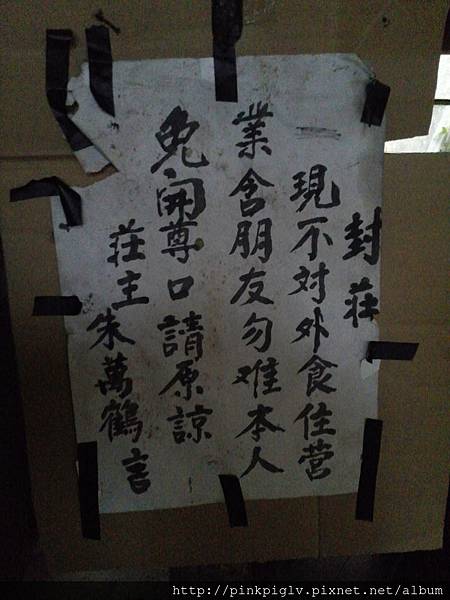 封莊
現不对外食住营
業含朋友勿难本人
免開尊口請原諒
莊主朱萬鶴言
http://pinkpiglv.pixnet.net/album